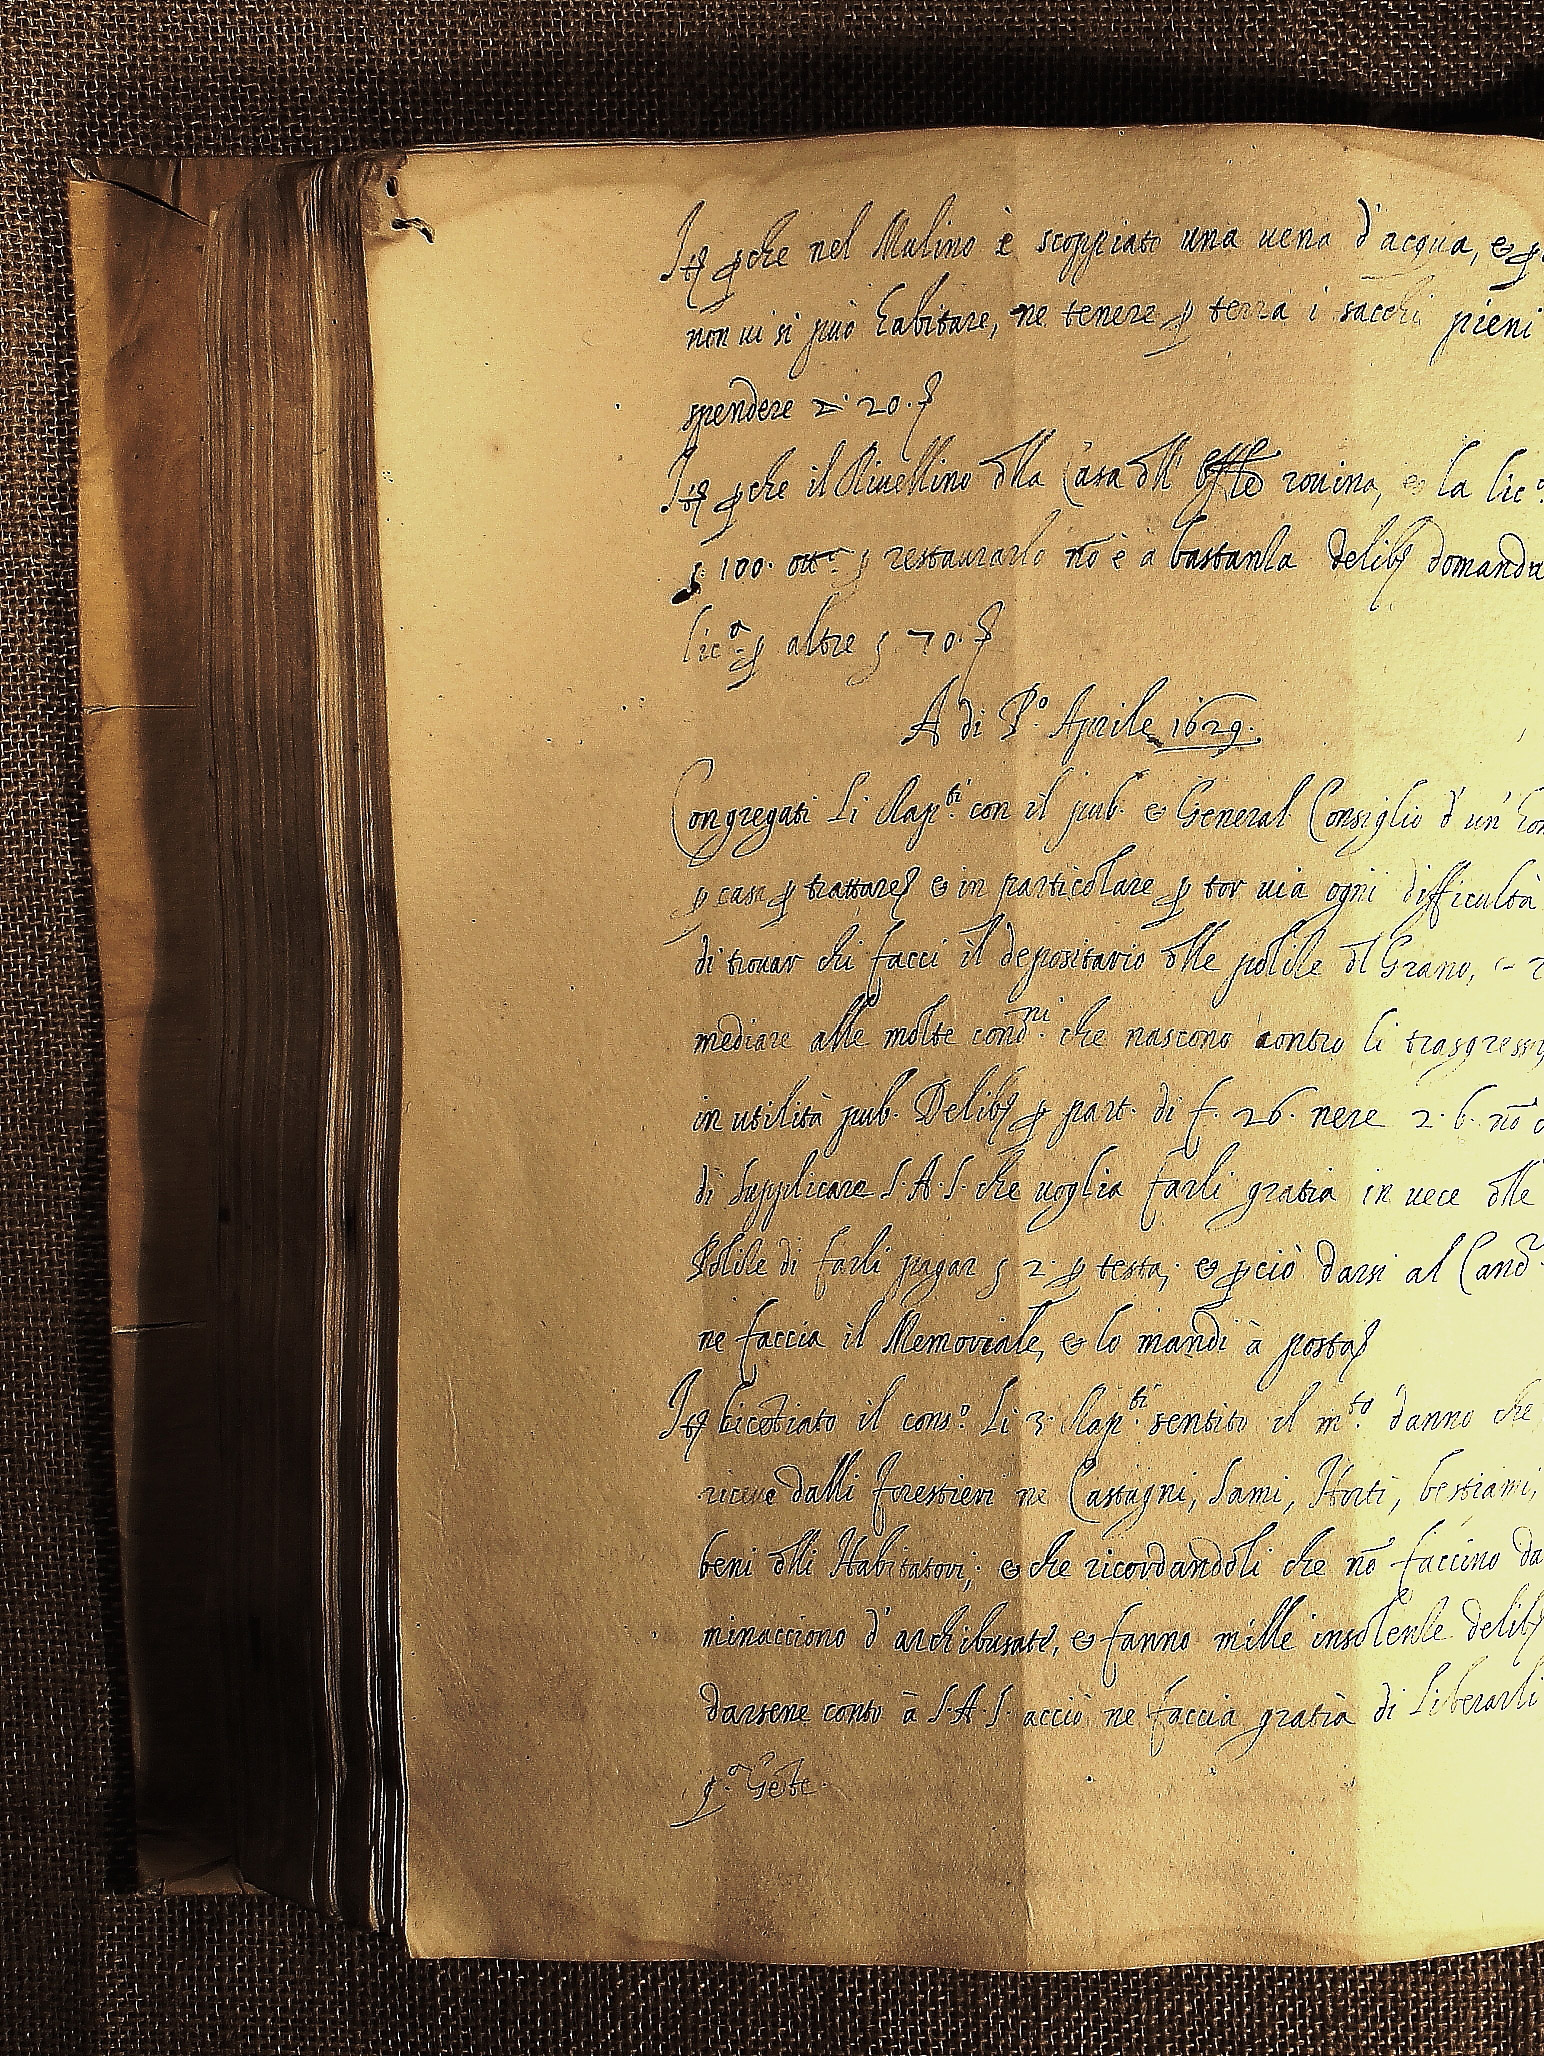 Itē ꝑche nel Mulino è scoppiato una uena d'acqua, &
non ui si può habitare, ne tenere ꝑ terra i sacchi pieni
spendere 20.
Itē ꝑche il Riuellino dlla Casa dll' rouina, & la lic.ª
100. ott.ᵉ ꝑ restaurarlo nō è à bastanza delibʳ domanda
lic.ª ꝑ altre 70.
A di P.º Aprile 1629.
Congregati Li Rap.ᵗⁱ con il pub. & General Consiglio d'un'
ꝑ case ꝑ trattare & in particolare ꝑ tor uia ogni difficultà
di trouar chi facci il depositario dlle polize dl Grano,
mediare alle molte cond.ⁿⁱ che nascono contro li
in utilità pub. Delibʳ ꝑ part. di f. 26. nere 2. b. nō
di Supplicare S.A.S. che uoglia farli gratia in uece dlle
Polize di farli pagar 2. ꝑ testa; & ꝑciò darsi al
ne faccia il Memoriale, & lo mandi à posta
Itē licētiato il cons.º Li 3. Rap.ᵗⁱ sentito il m.ᵗᵒ danno che
riceue dalli forestieri ne Castagni, Sami, Horti, bestiami,
beni dlli Habitatori; & che ricordandoli che nō faccino
minacciono d'archibusate, & fanno mille insolenze delibʳ
darsene conto à S.A.S. acciò ne faccia gratia di Liberarli